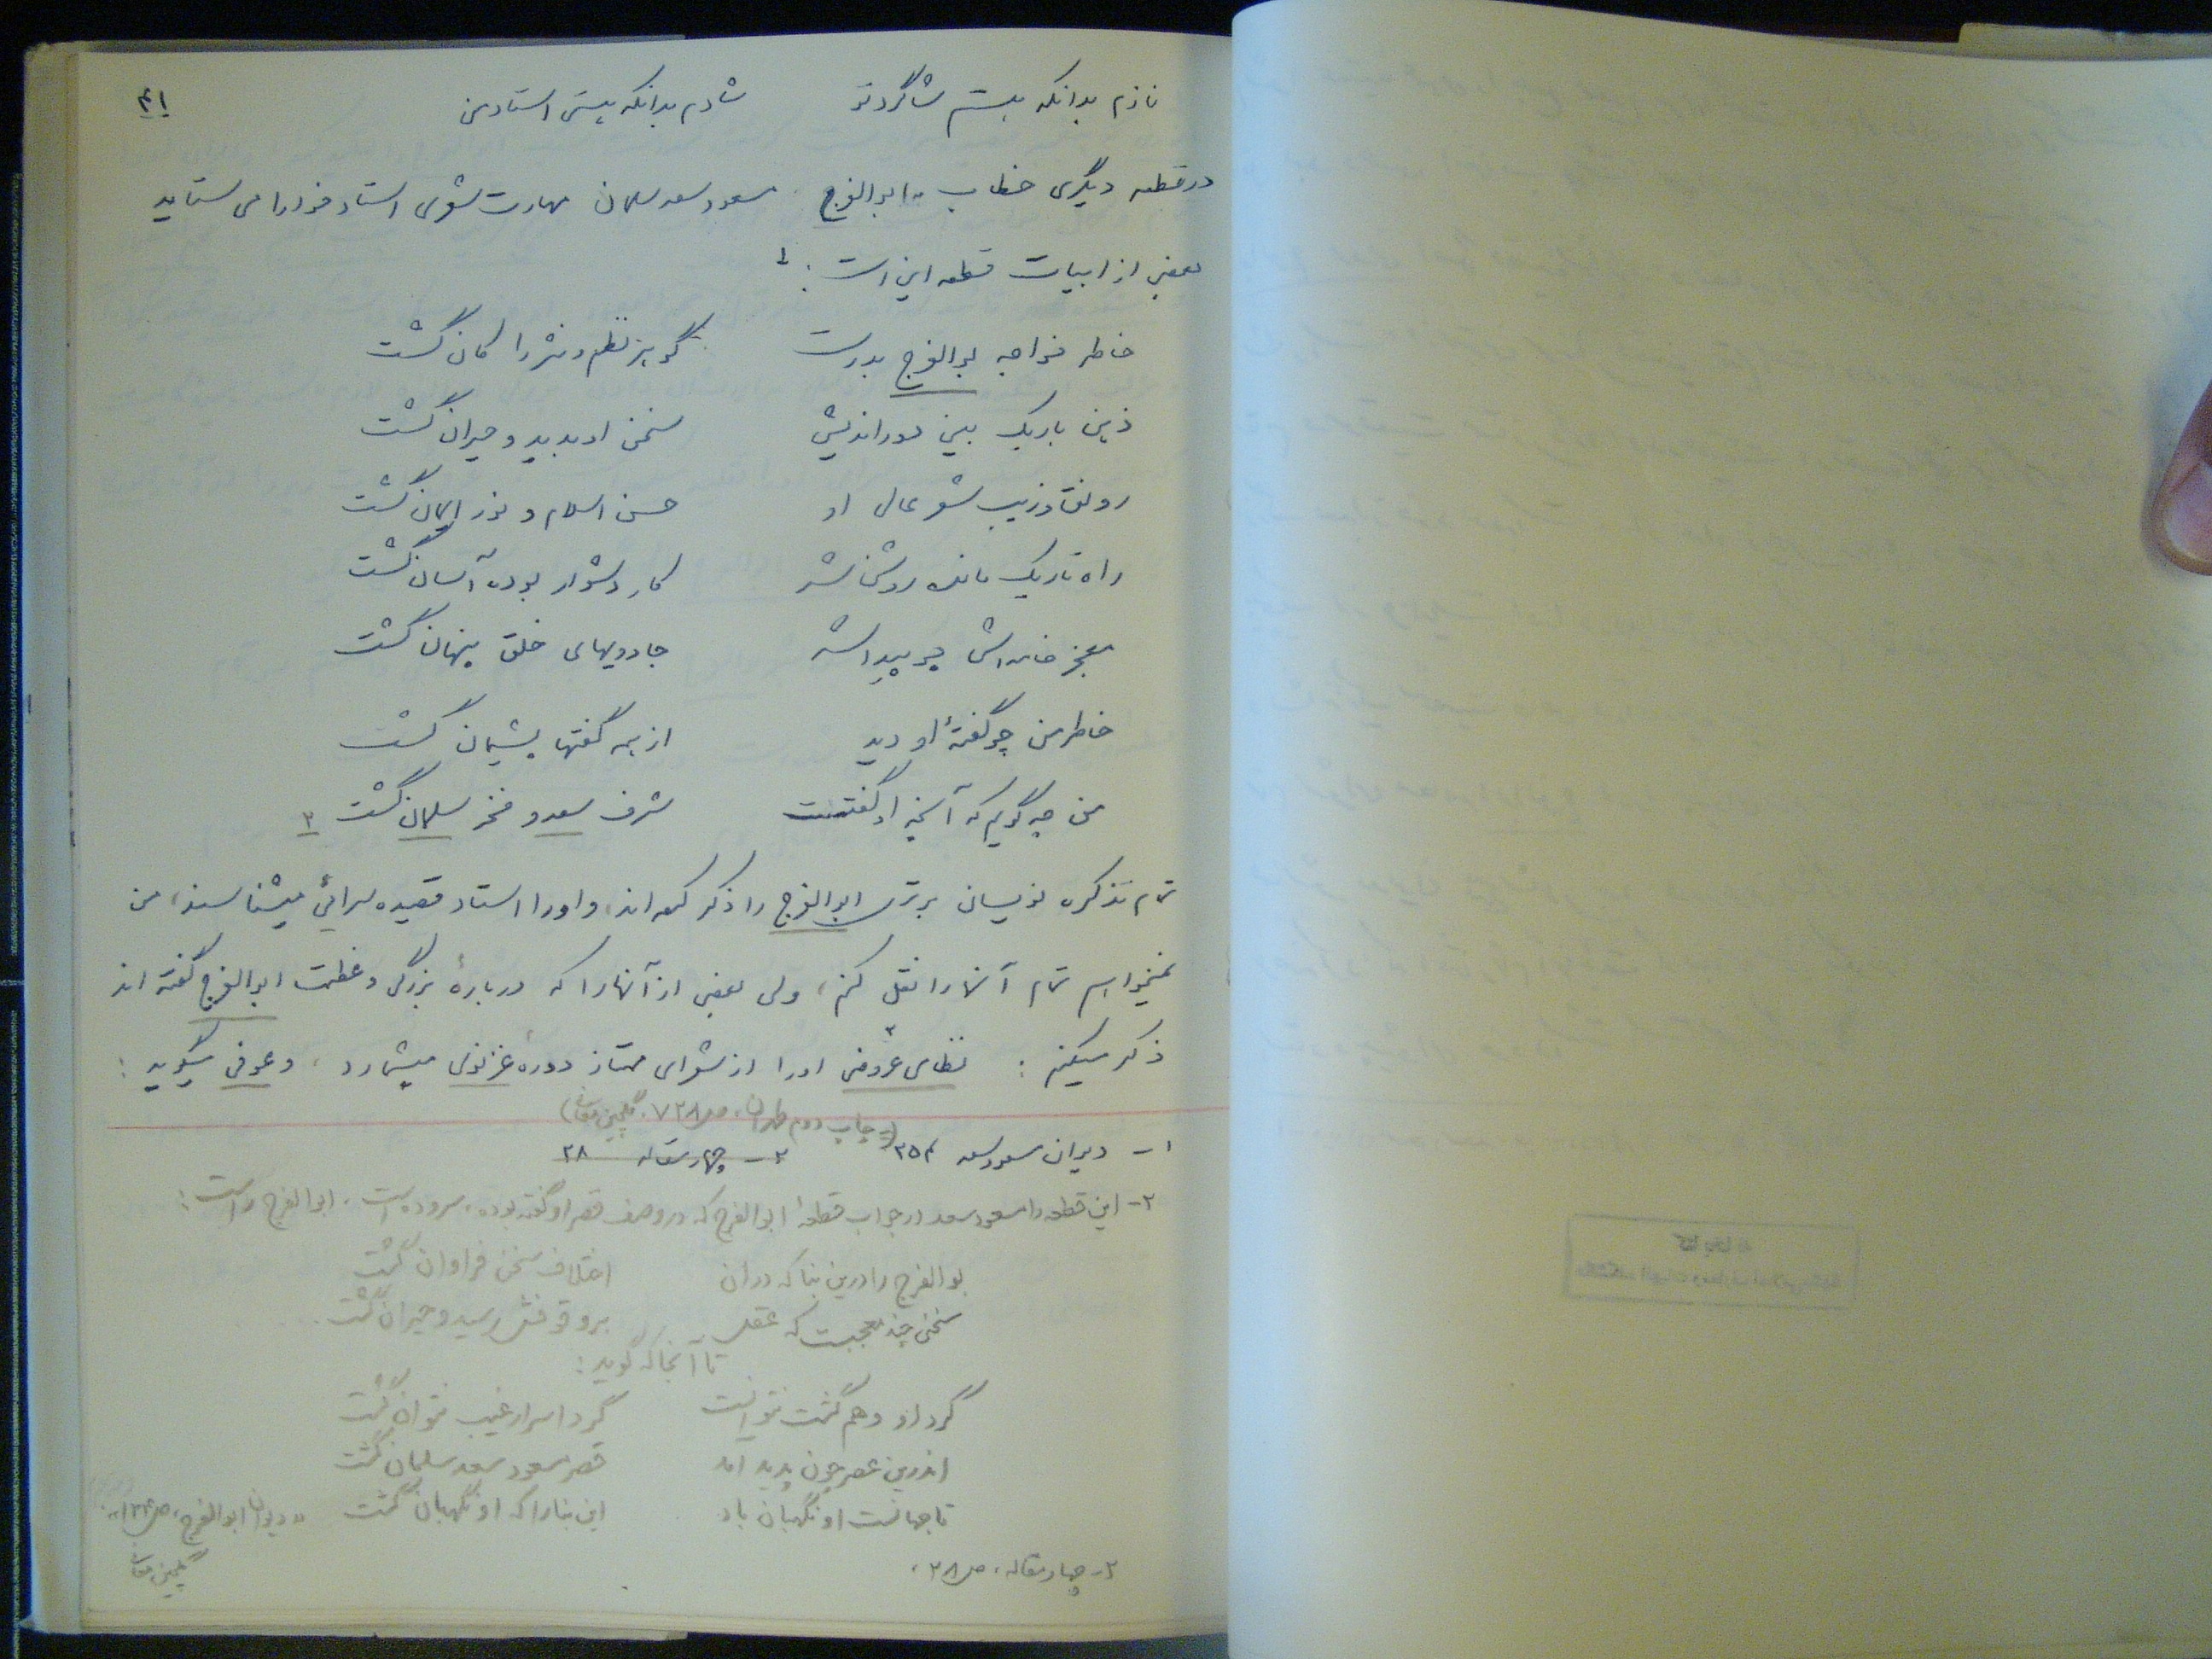 ۴۱
نازم بدانکه هستم شاگرد تو شادم بدانکه هستی استاد من
در قطعه دیگری خطاب به ابوالفرج مسعود سعد سلمان مهارت شعری استاد خود را می ستاید
بعضی از ابیات قطعه این است : ۱
خاطر خواجه بوالفرج بدرست گوهر نظم و نثر را کان گشت
ذهن باریک بین دوراندیش سخن او بدید و حیران گشت
رونق و زیب شعر عالی او حسن اسلام و نور ایمان گشت
راه تاریک مانده روشن شد کار دشوار بوده آسان گشت
معجز خامه اش چو پیدا شد جادویهای خلق پنهان گشت
خاطر من چو گفتهٔ او دید از همه گفتها پشیمان گشت
من چه گویم که آنچه او گفتست شرف سعد و فخر سلمان گشت ۲
تمام تذکره نویسان برتری ابوالفرج را ذکر کرده اند، و او را استاد قصیده سرائی میشناسند، من
نمیخواهم تمام آنها را نقل کنم، ولی بعضی از آنها را که دربارهٔ بزرگی و عظمت ابوالفرج گفته اند
ذکر میکنم : نظامی عروضی ۳ او را از شعرای ممتاز دورهٔ غزنوی میشمارد ، و عوفی میگوید :
(= چاپ دوم طهران، ص ۷۲۸، گلچین معانی)
۱- دیوان مسعود سعد ۲۵۴ ۲- چهار مقاله ۲۸
۲- این قطعه را مسعود سعد در جواب قطعهٔ ابوالفرج که در وصف قصر او گفته بوده، سروده است، ابوالفرج راست :
بوالفرج را درین بنا که در آن اختلاف سخن فراوان گشت
سخنی چند معجبست که عقل بر وقوفش رسید و حیران گشت
تا آنجا که گوید :
گرد او وهم گشت نتوانست گرد اسرار غیب نتوان گشت
اندرین عصر چون پدید آمد قصر مسعود سعد سلمان گشت
تا جهانست او نگهبان باد این بنا را که او نگهبان گشت
« دیوان ابوالفرج، ص
گلچین معانی
۳- چهار مقاله، ص ۲۸،